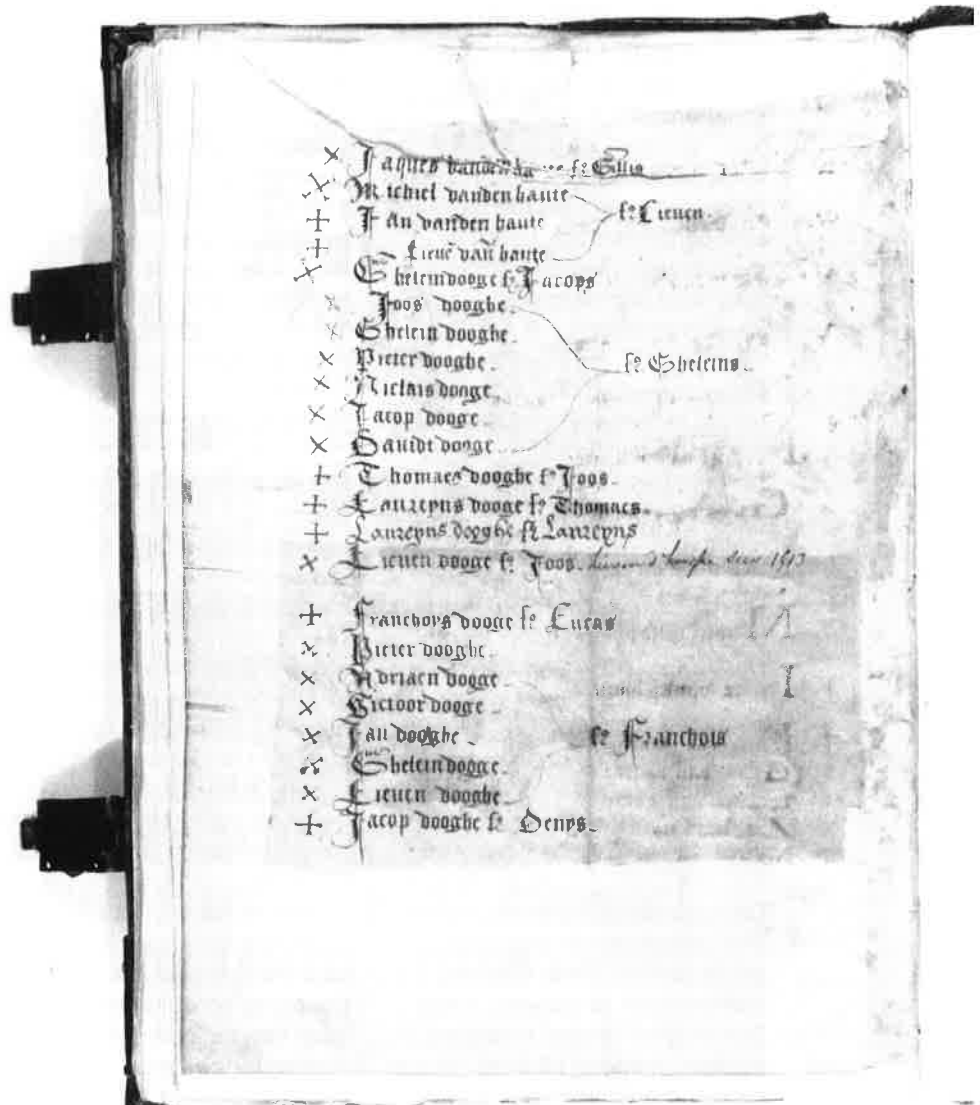 Jaques vanden fs Gillis
Michiel vanden haute
fs Lieuen
Jan vanden haute
Lieuē vāū haute
Ghelein dooge fs Jacops
Joos dooghe
Ghelein dooghe
Pieter dooghe
fs Gheleins
Niclais dooge
Jacop dooge
Dauidt dooge
Thomaes dooghe fs Joos
Laureyns dooge fs Thomaes
Laureyns dooghe fs Laureyns
Lieuen dooge fs Joos
Franchoys dooge fs Lucas
Pieter dooghe
Adriaen dooge
Victoor dooge
Jan dooghe
fs Franchois
Ghelein dooge
Lieuen dooghe
Jacop dooghe fs Denys